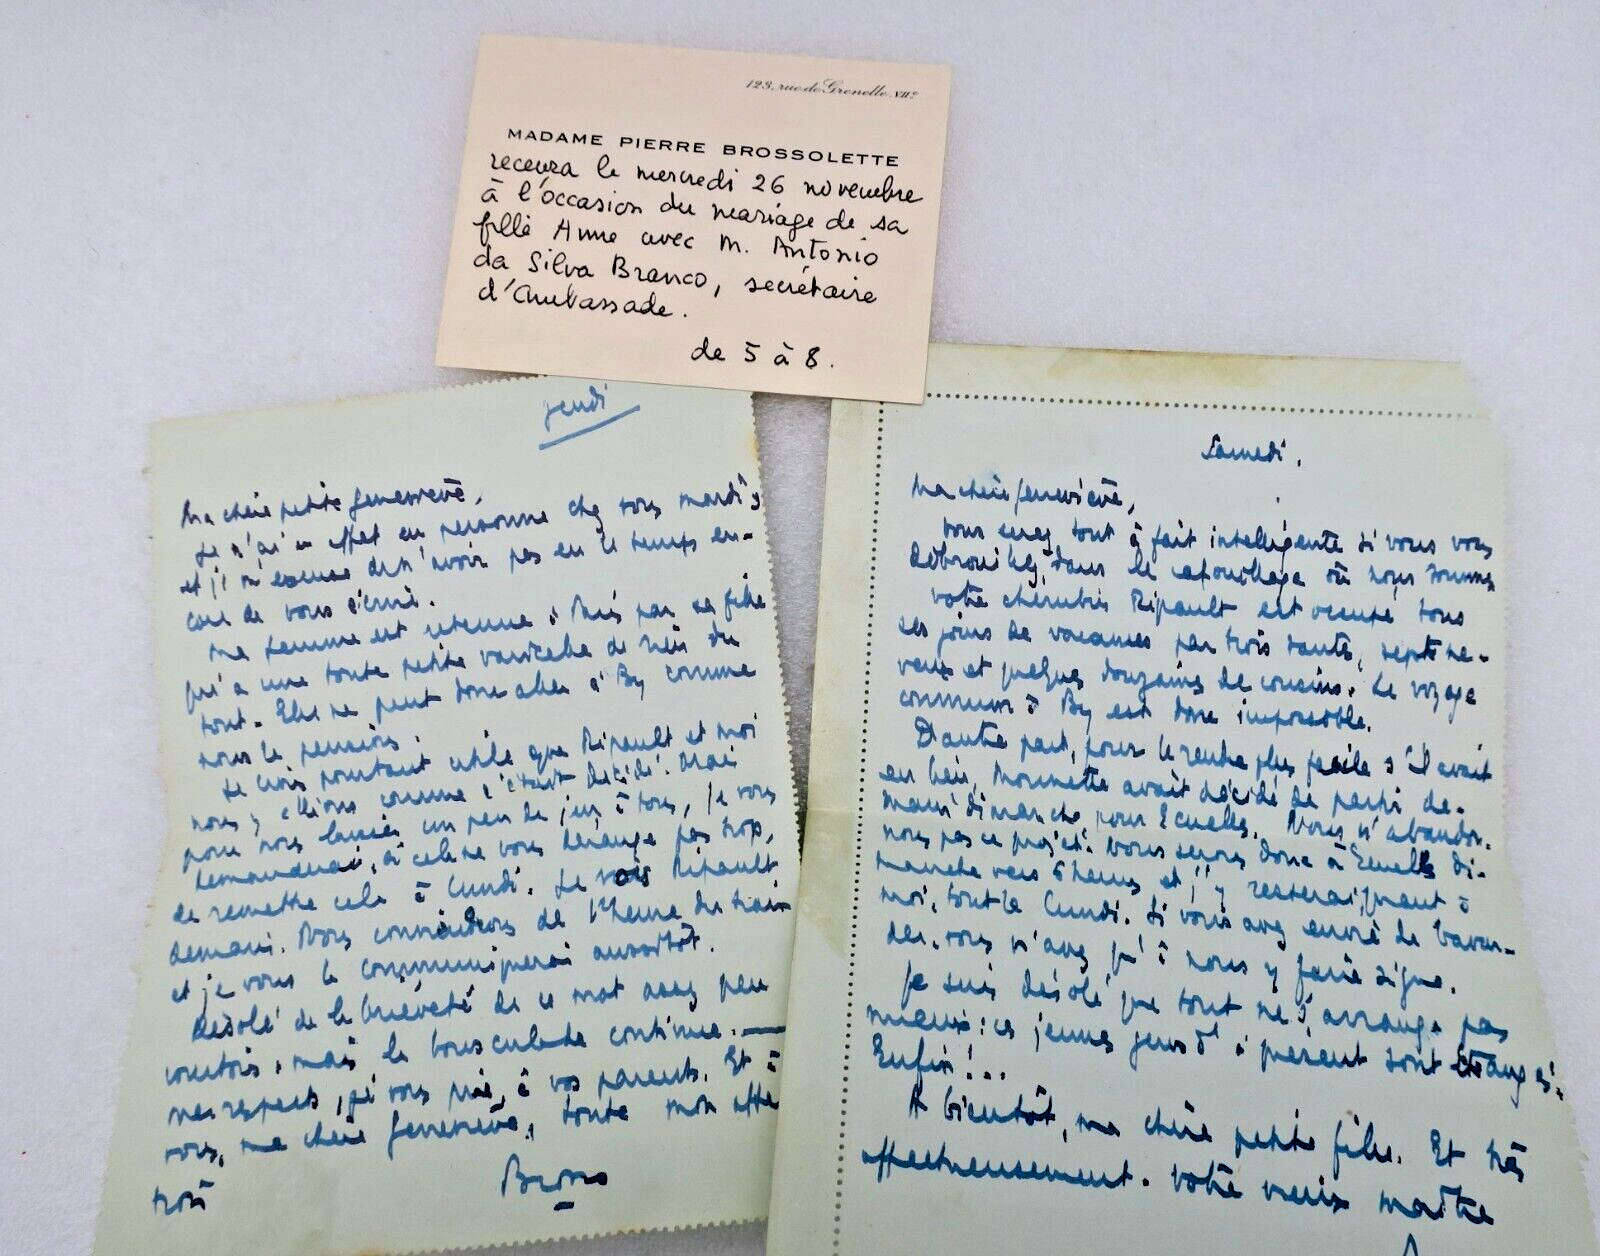 123, rue de Grenelle. VIIe
MADAME PIERRE BROSSOLETTE
recevra le mercredi 26 novembre
à l'occasion du mariage de sa
fille Anne avec M. Antonio
da Silva Branco, secrétaire
d'Ambassade.
de 5 à 8.
jeudi
Ma chère petite Geneviève,
Je n'ai en effet eu personne chez vous mardi
et je m'excuse de n'avoir pas eu le temps en-
core de vous écrire.
Ma femme est retenue à par sa fille
qui a une toute petite varicelle de rien du
tout. Elle ne peut donc aller à By comme
nous le pensions.
Je crois pourtant utile que Ripault et moi
nous y allions comme c'était décidé. Mais
pour nous laisser un peu de jeu à tous, je vous
demanderai, si cela ne vous dérange pas trop,
de remettre cela à lundi. Je vois Ripault
demain. Nous conviendrons de l'heure du train
et je vous le communiquerai aussitôt.
Désolé de la brièveté de ce mot assez peu
courtois, mais la bousculade continue. —
Mes respects, je vous prie, à vos parents. Et à
vous, ma chère Geneviève, toute mon affec
Samedi.
Ma chère Geneviève,
Vous serez tout à fait intelligente si vous vous
débrouillez dans le cafouillage où nous sommes
Votre chérubin Ripault est occupé tous
ses jours de vacances par trois tantes, sept ne-
veux et quelques douzaines de cousins. Le voyage
commun à By est donc impossible.
D'autre part, pour le rendre plus facile s'il avait
eu lieu, avait décidé de partir de-
main dimanche pour Ecuelles. Nous n'abandon-
nons pas ce projet. Nous serons donc à Ecuelles di-
manche vers 6 heures et j'y resterai, quant à
moi, tout le lundi. Si vous avez envie de bavar-
der, vous n'avez qu'à nous y faire signe.
Je suis désolé que tout ne s'arrange pas
mieux : ces jeunes gens d'à présent sont étranges.
Enfin !...
A bientôt, ma chère petite fille. Et très
affectueusement. Votre vieux maître